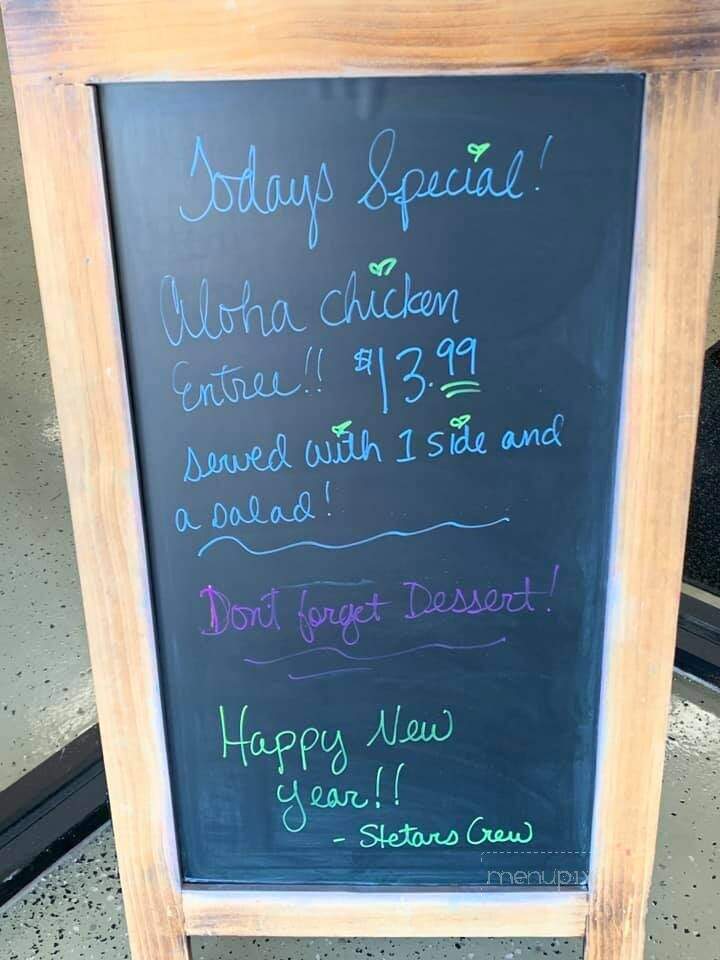 Todays Special!
Aloha chicken
Entree!! $13.99
served with 1 side and
a salad!
Dont forget Dessert!
Happy New
year!!
- Stetars Crew
menupix